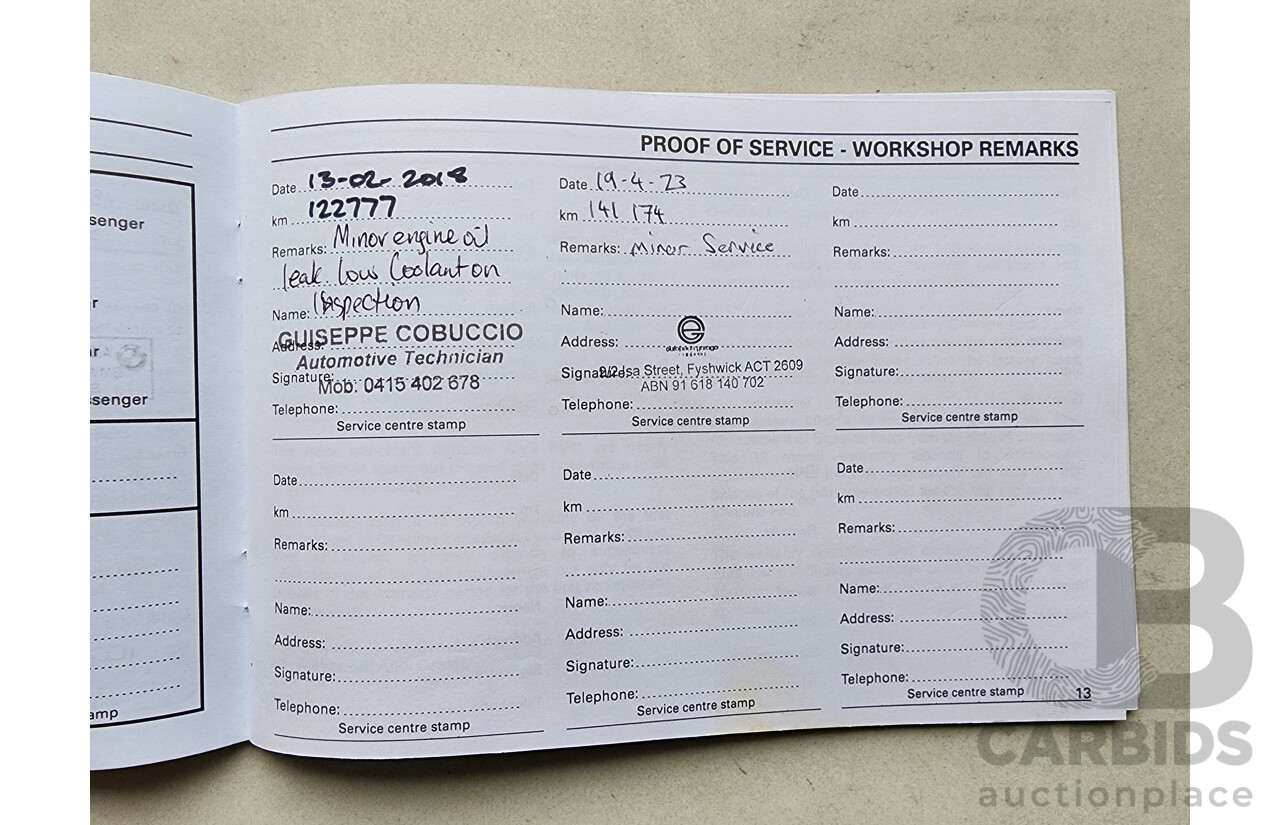 senger
r
ar
ssenger
amp
PROOF OF SERVICE - WORKSHOP REMARKS
Date 13-02-2018
km 122777
Remarks: Minor engine oil
leak. Low Coolant on
Name: Inspection
GUISEPPE COBUCCIO
Address:
Automotive Technician
Signature:
Mob: 0415 402 678
Telephone:
Service centre stamp
Date 19-4-23
km 141 174
Remarks: Minor Service
Name:
Address:
Signature:
2/2 Isa Street, Fyshwick ACT 2609
ABN 91 618 140 702
Telephone:
Service centre stamp
Date
km
Remarks:
Name:
Address:
Signature:
Telephone:
Service centre stamp
Date
km
Remarks:
Name:
Address:
Signature:
Telephone:
Service centre stamp
Date
km
Remarks:
Name:
Address:
Signature:
Telephone:
Service centre stamp
Date
km
Remarks:
Name:
Address:
Signature:
Telephone:
Service centre stamp
13
CARBIDS
auctionplace